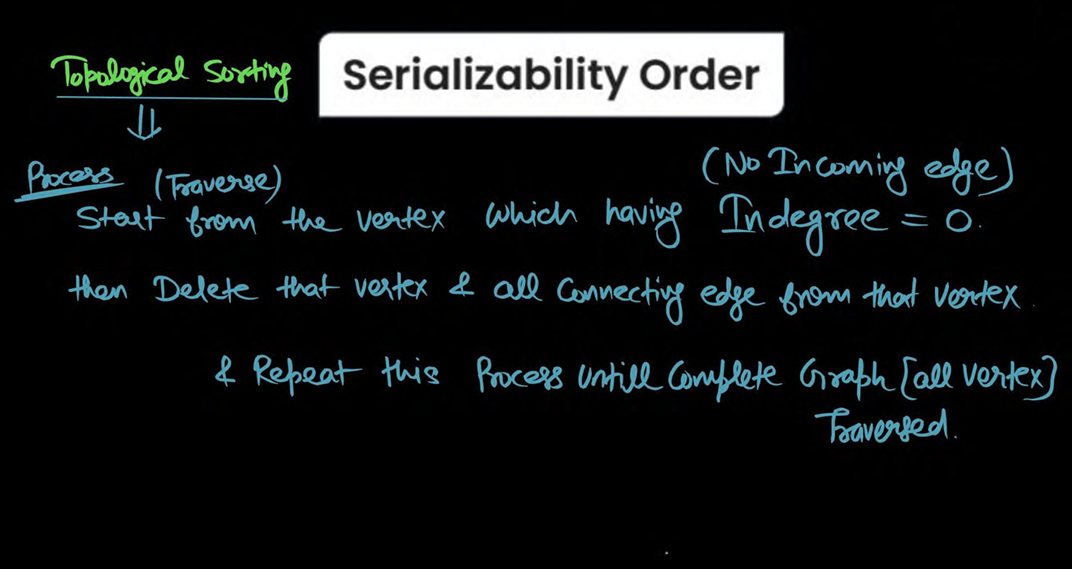 Topological Sorting
Serializability Order
Process (Traverse)
(No Incoming edge)
Start from the vertex which having Indegree = 0.
then Delete that vertex & all connecting edge from that vertex.
& Repeat this Process Untill Complete Graph [all vertex]
Traversed.